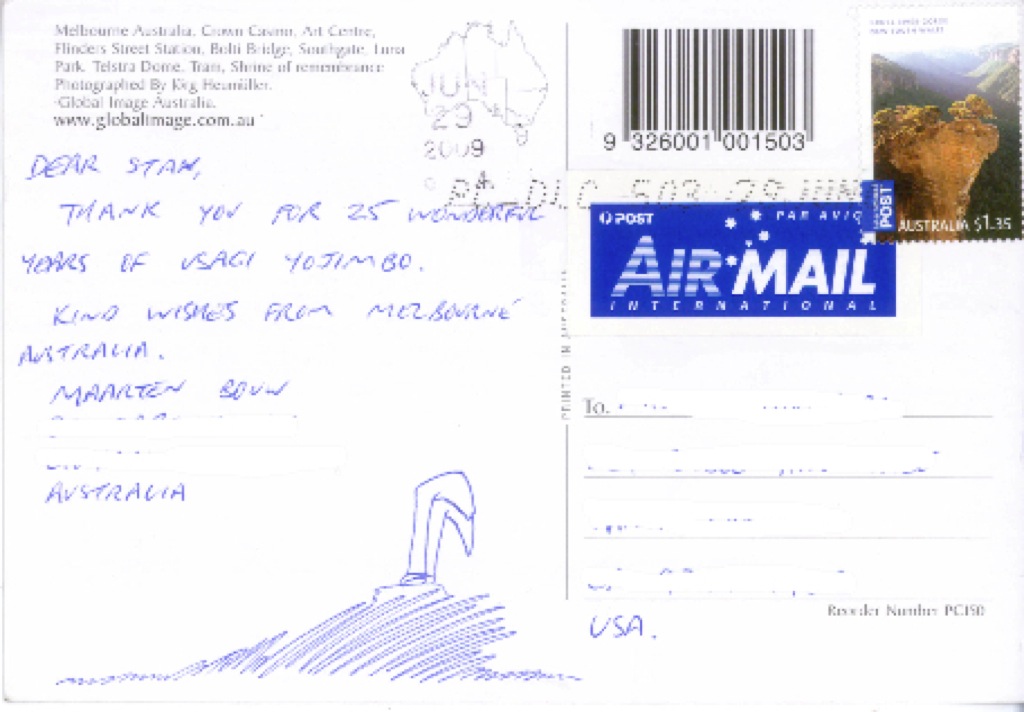 Melbourne Australia, Crown Casino, Art Centre,
Flinders Street Station, Bolti Bridge, Southgate, Luna
Park, Telstra Dome, Tram, Shrine of remembrance
Photographed By Jörg Heumüller.
Global Image Australia.
www.globalimage.com.au
JUN
29
2009
DEAR STAN,
THANK YOU FOR 25 WONDERFUL
YEARS OF USAGI YOJIMBO.
KIND WISHES FROM MELBOURNE
AUSTRALIA.
MAARTEN BOUW
AUSTRALIA
PRINTED IN AUSTRALIA
9 326001 001503
NEW SOUTH WALES
INTERNATIONAL
POST
AUSTRALIA $1.35
POST PAR AVION
AIR MAIL
INTERNATIONAL
To.
USA.
Reorder Number PC150